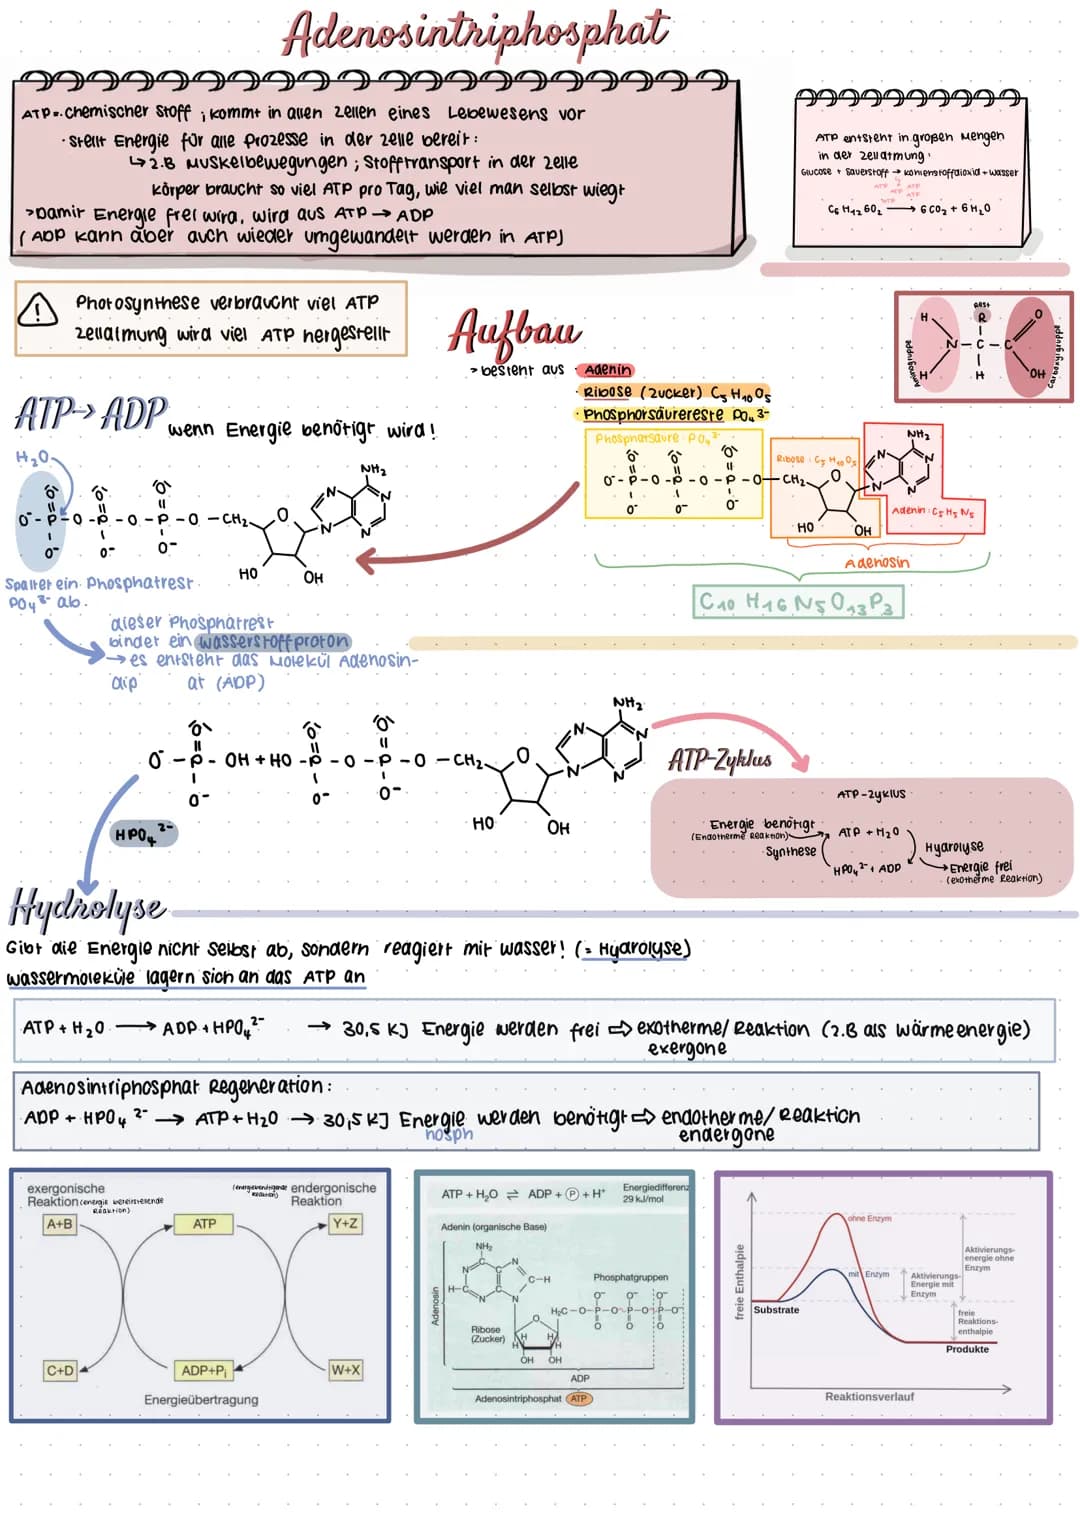 Adenosintriphosphat
ATP = chemischer Stoff ; kommt in allen Zellen eines Lebewesens vor
· stellt Energie für alle Prozesse in der Zelle bereit:
↳ z.B Muskelbewegungen ; Stofftransport in der Zelle
Körper braucht so viel ATP pro Tag, wie viel man selbst wiegt
> Damit Energie frei wird, wird aus ATP → ADP
( ADP kann aber auch wieder umgewandelt werden in ATP)
ATP entsteht in großen Mengen
in der Zellatmung:
Glucose + Sauerstoff → Kohlenstoffdioxid + Wasser
ATP ATP
ATP ATP
ATP
C6 H12 6O2 → 6 CO2 + 6 H2O
! Photosynthese verbraucht viel ATP
Zellatmung wird viel ATP hergestellt
Aufbau
> besteht aus · Adenin
· Ribose (Zucker) C5 H10 O5
· Phosphorsäurereste PO4 3-
Aminogruppe
Rest
R
H
N - C - C
O
H
H
OH
Carboxylgruppe
Phosphorsäure PO4 3-
O O O
O- - P - O - P - O - P - O - CH2
O- O- O-
Ribose : C5 H10 O5
O
HO OH
NH2
N N N N
Adenin : C5 H5 N5
Adenosin
C10 H16 N5 O13 P3
ATP → ADP
wenn Energie benötigt wird!
H2O
O O O
O- - P - O - P - O - P - O - CH2
O- O- O-
O
HO OH
NH2
N N N N
Spaltet ein Phosphatrest
PO4 3- ab.
dieser Phosphatrest
bindet ein Wasserstoffproton
→ es entsteht das Molekül Adenosin-
dip at (ADP)
O O O
O- - P - OH + HO - P - O - P - O - CH2
O- O- O-
O
HO OH
NH2
N N N N
HPO4 2-
ATP-Zyklus
ATP-Zyklus
Energie benötigt
(Endotherme Reaktion)
Synthese
ATP + H2O
HPO4 2- + ADP
Hydrolyse
→ Energie frei
(exotherme Reaktion)
Hydrolyse
Gibt die Energie nicht selbst ab, sondern reagiert mit Wasser! (= Hydrolyse)
Wassermoleküle lagern sich an das ATP an
ATP + H2O → ADP + HPO4 2- → 30,5 KJ Energie werden frei ⇒ exotherme/ Reaktion (z.B als Wärmeenergie)
exergone
Adenosintriphosphat Regeneration:
ADP + HPO4 2- → ATP + H2O → 30,5 KJ Energie werden benötigt ⇒ endotherme/ Reaktion
nosph
endergone
exergonische
Reaktion (energie bereitstellende
Reaktion)
(energiebenötigende
Reaktion)
endergonische
Reaktion
A+B
ATP
Y+Z
C+D
ADP+Pi
W+X
Energieübertragung
ATP + H2O ⇌ ADP + P + H+
Energiedifferenz
29 kJ/mol
Adenin (organische Base)
Adenosin
NH2
N C C N
H-C C C-H
N N
Phosphatgruppen
O- O- O-
H2C-O-P-O-P-O-P-O-
O O O
Ribose
(Zucker)
O
H H H H
OH OH
ADP
Adenosintriphosphat ATP
freie Enthalpie
ohne Enzym
mit Enzym
Substrate
Aktivierungs-
energie ohne
Enzym
Aktivierungs-
Energie mit
Enzym
freie
Reaktions-
enthalpie
Produkte
Reaktionsverlauf